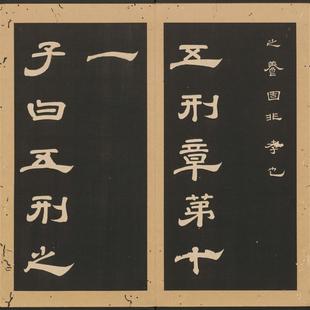 之養固非孝也
五刑章第十
一
子曰五刑之